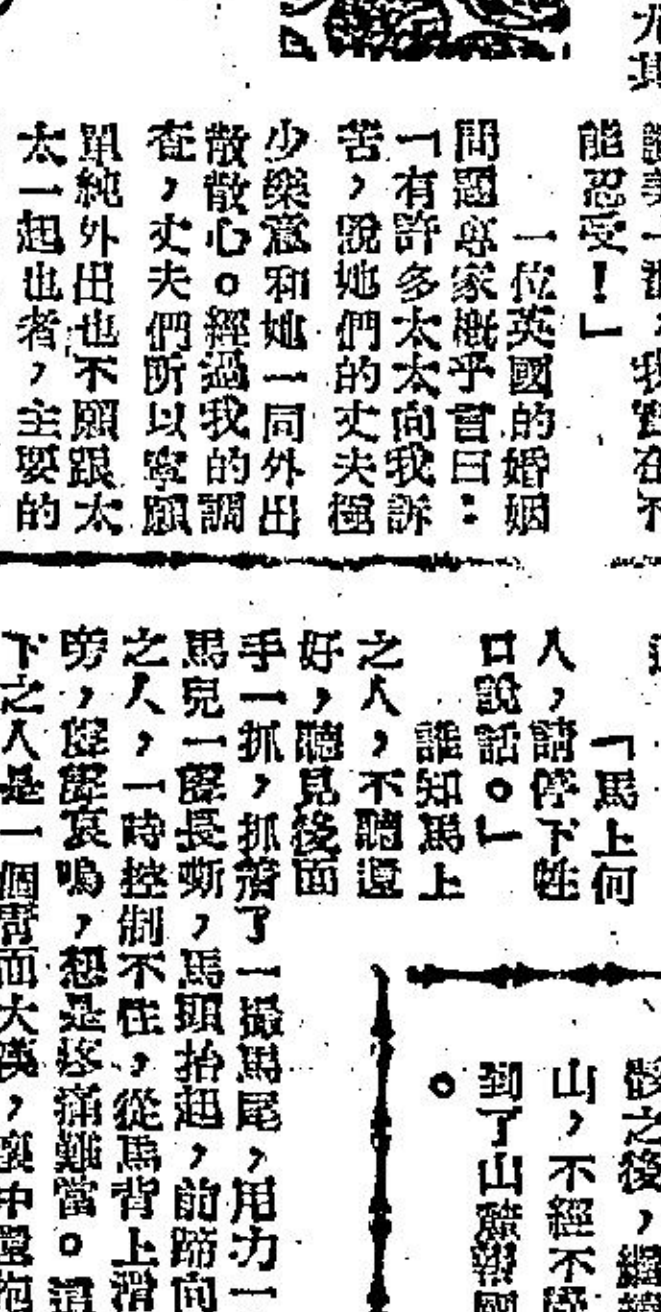 尤其
能忍受！」
一位英國的婚姻
問題專家慨乎言曰：
「有許多太太向我訴
苦，說她們的丈夫極
少樂意和她一同外出
散散心。經過我的調
查，丈夫們所以寧願
單純外出也不願跟太
太一起也者，主要的
「馬上何
人，請停下牲
口說話。」
誰知馬上
之人，不聽還
好，聽見後面
手一抓，抓着了一撮馬尾，用力一
馬兒一聲長嘶，馬頭抬起，前蹄向
之人，一時控制不住，從馬背上滑
旁，聲聲哀鳴，想是疼痛難當。這
下之人是一個青面大漢，懷中還抱
之後，繼續
山，不經不
到了山
。